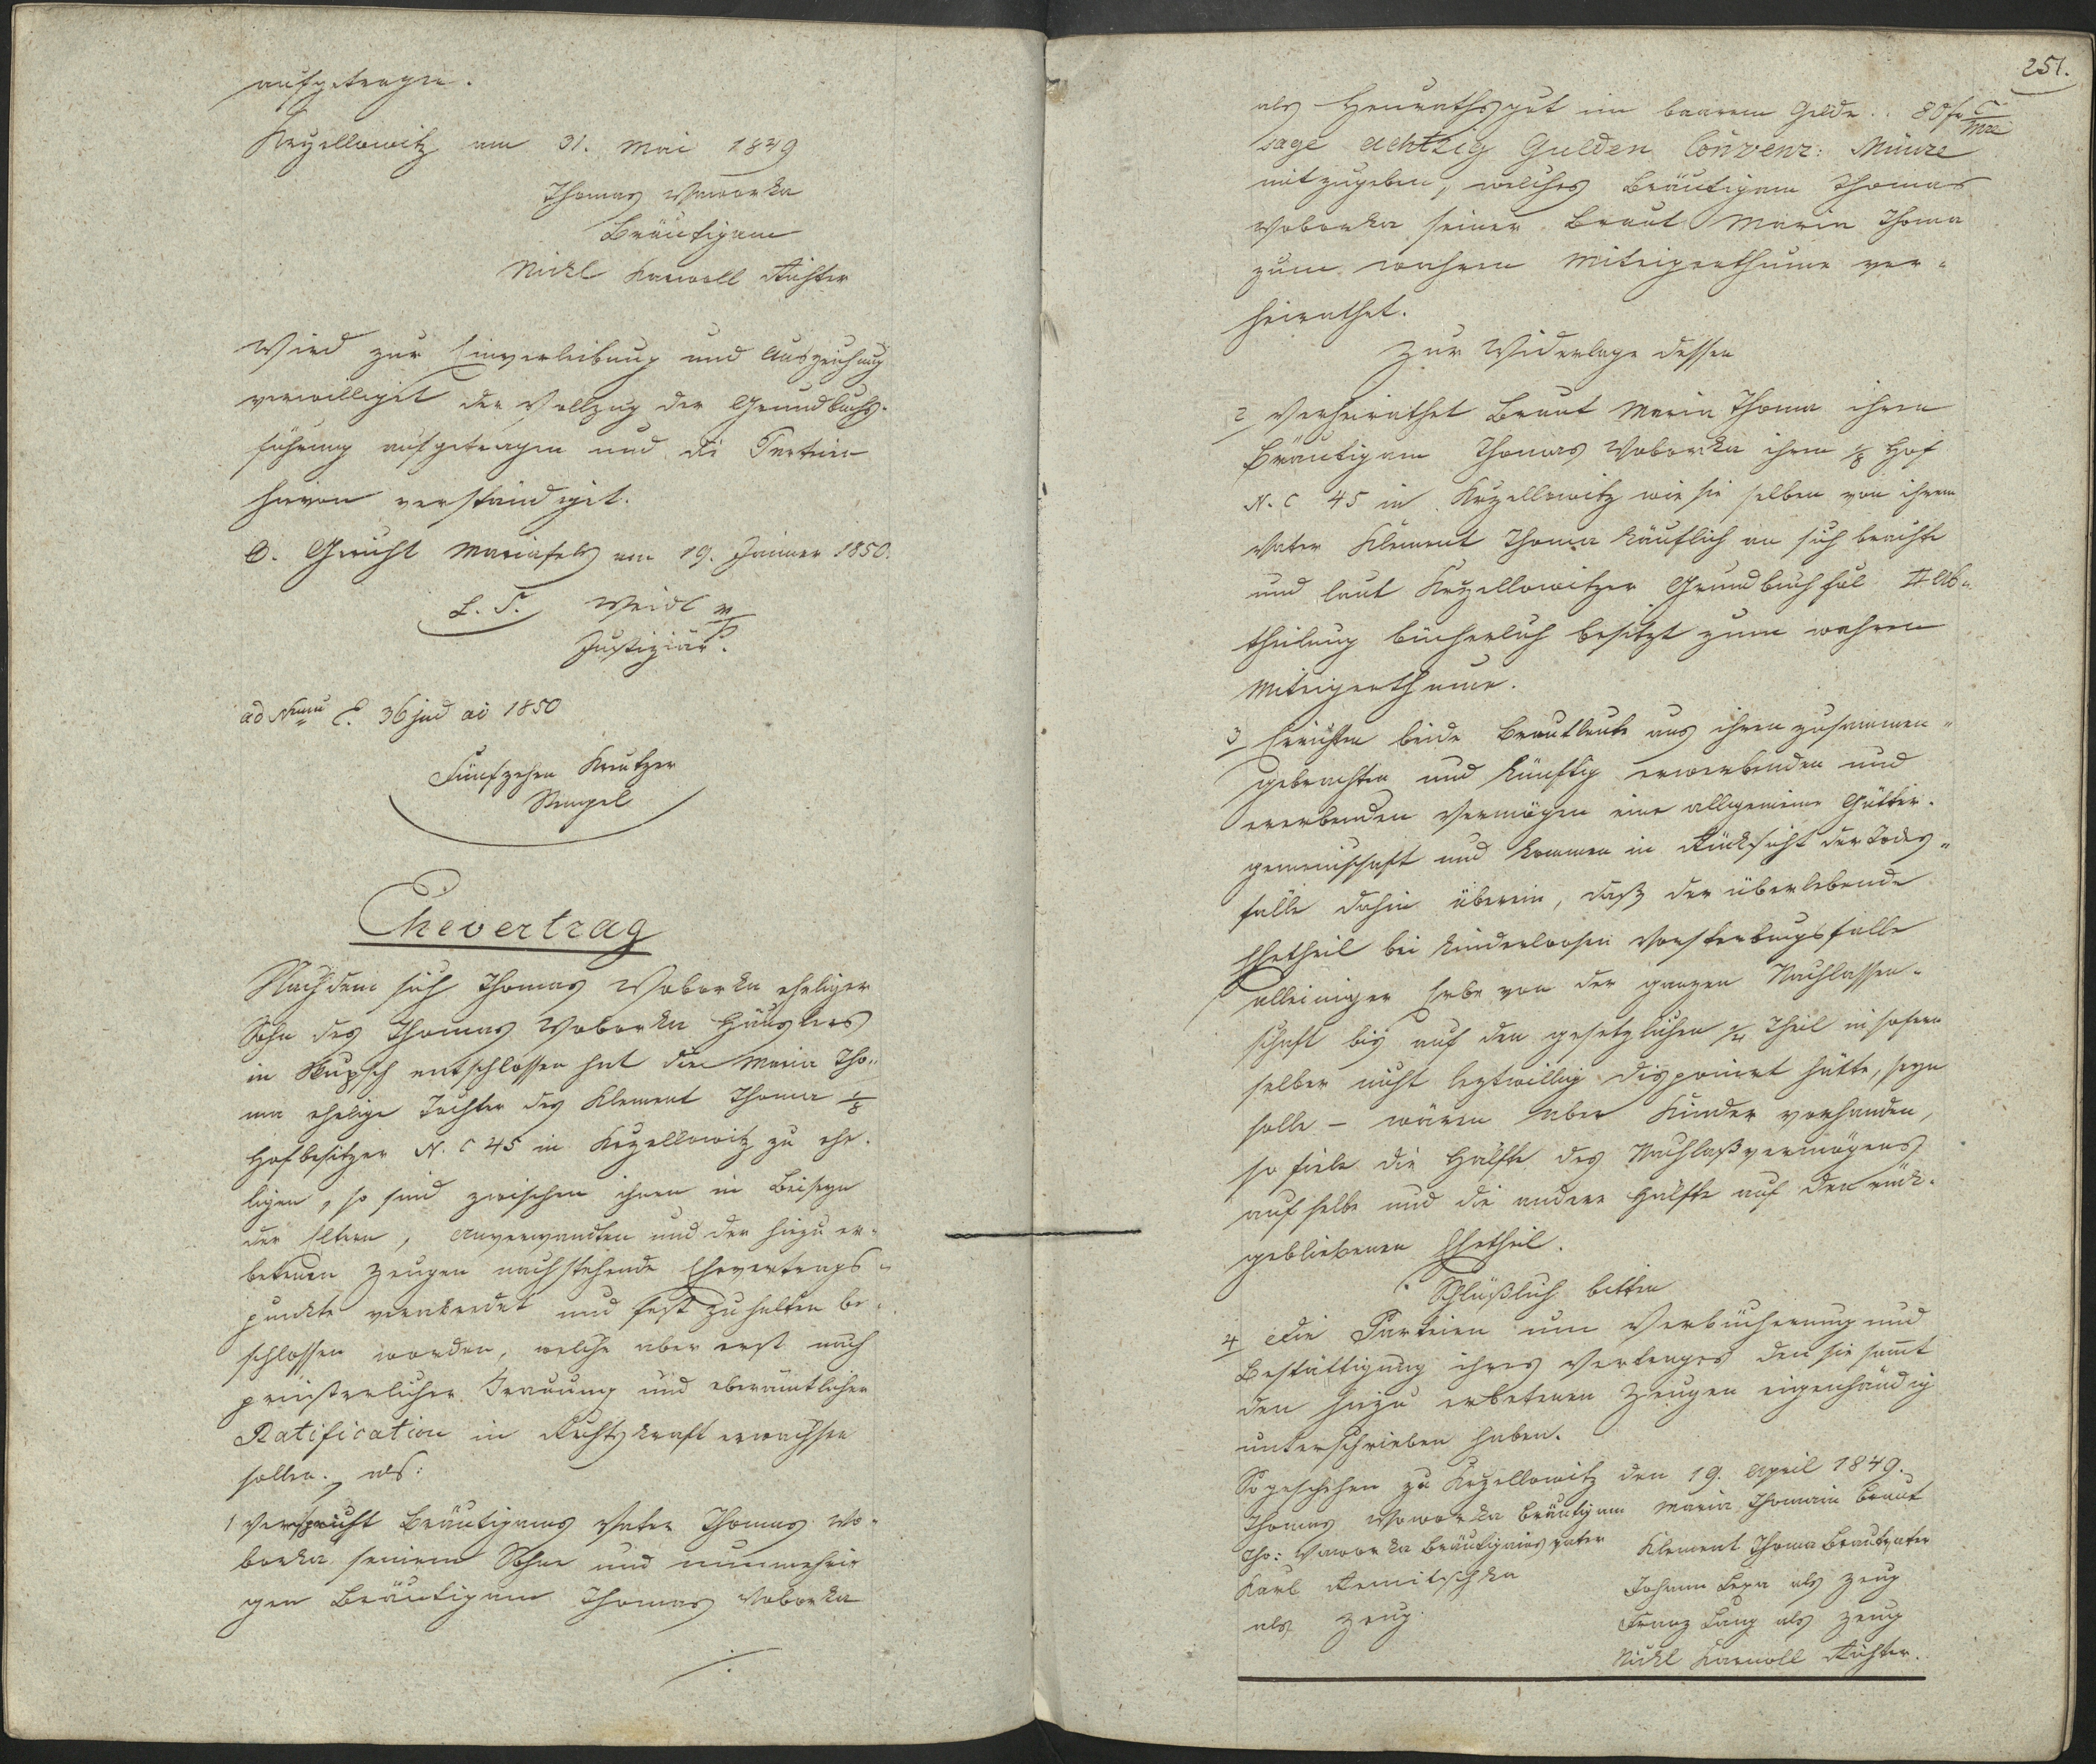 aufgetragen.
Krzellowitz am 31. Mai 1849
Thomas Waworka
Bräutigam
Nickl Karwoll Richter
Wird zur Einverleibung und Auszeichnung
verwilliget der Vollzug der Grundbuchs-
führung aufgetragen und die Partein
hievon verständiget.
O. Gericht Mariafels am 19. Jänner 1850.
L. S. Weidl m/p
Justiziär.
ad Num E. 36 jud ai 1850
Fünfzehen Kreutzer
Stempel
Ehevertrag
Nachdem sich Thomas Woborka eheliger
Sohn des Thomas Woborka Häuslers
in Skupsch entschlossen hat die Maria Tho-
ma ehelige Tochter des Klement Thoma 1/8
Hofbesitzer N. C 45 in Krzellowitz zu ehe-
ligen, so sind zwischen ihnen in Beiseyn
der Eltern, Anverwandten und der hiezu er-
betenen Zeugen nachstehende Ehevertrags-
punkte verabredet und fest zu halten be-
schlossen worden, welche aber erst nach
priesterlicher Trauung und oberamtlicher
Ratification in Rechtskraft erwachsen
sollen. als:
1 Verspricht Bräutigams Vater Thomas Wo-
borka seinem Sohne und nunmehri-
gen Bräutigam Thomas Woborka
./.
251.
als Heurathsgut im baarem Gelde .. 80 f C/Mze
sage Achtzig Gulden Convenz: Münze
mitzugeben, welches Bräutigam Thomas
Woborka seiner Braut Maria Thoma
zum wahren Miteigenthume ver-
heirathet.
Zur Widerlage dessen
2 Verheirathet Braut Maria Thoma ihren
Bräutigam Thomas Woborka ihren 1/8 Hof
N. C 45 in Krzellowitz wie sie selben von ihrem
Vater Klement Thoma käuflich an sich brachte
und laut Krzellowitzer Grundbuch fol II Ab-
theilung bücherlich besitzt zum wahren
Miteigenthume.
3 Errichten beide Brautleute aus ihren zusammen-
gebrachten und künftig erwerbenden und
ererbenden Vermögen eine allgemeine Gütter-
gemeinschaft und kommen in Rücksicht der Todes-
fälle dahin überein, daß der überlebende
Ehetheil bei kinderlosen Vorsterbungsfalle
alleiniger Erbe von der ganzen Nachlassen-
schaft bis auf den gesetzlichen 1/4 Theil insofern
selber nicht leztwillig disponirt hätte, seyn
solle – wären aber Kinder vorhanden,
so fiele die Hälfte des Nachlaßvermögens
auf selbe und die andere Hälfte auf den rück-
gebliebenen Ehetheil.
Schlüßlich bitten
4 Die Parteien um Verbücherung und
Bestättigung ihres Vertrages den sie samt
den hiezu erbetenen Zeugen eigenhändig
unterschrieben haben.
So geschehen zu Krzellowitz den 19. April 1849.
Thomas Woworka Bräutigam Maria Thomain Braut
Tho: Waworka Bräutigams Vater Klement Thoma Brautvater
Karl Remitschka Johann Lepa als Zeug
als Zeug. Franz Lang als Zeug
Nickl Karwoll Richter.